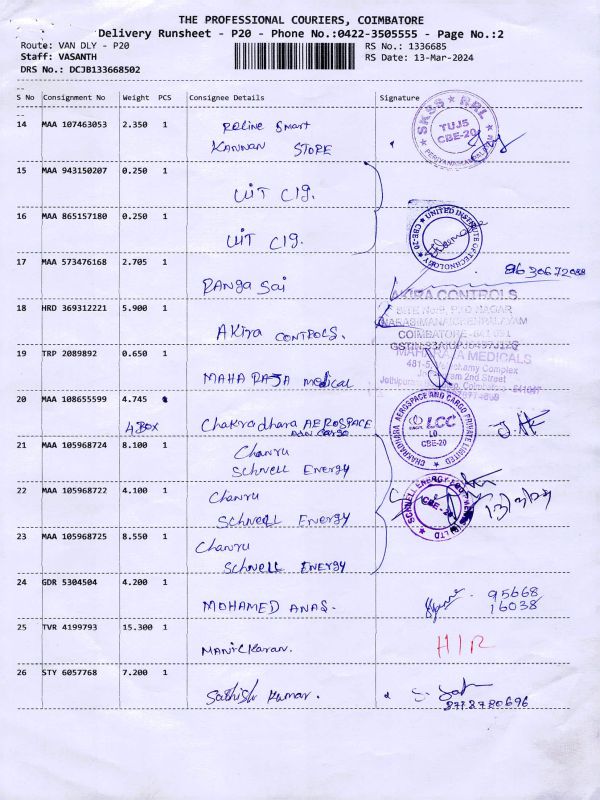 THE PROFESSIONAL COURIERS, COIMBATORE
Delivery Runsheet - P20 - Phone No.:0422-3505555 - Page No.:2
Route: VAN DLY - P20
RS No.: 1336685
Staff: VASANTH
RS Date: 13-Mar-2024
DRS No.: DCJB133668502
S No Consignment No Weight PCS Consignee Details Signature
14 MAA 107463053 2.350 1 Reline Smart
KANNAN STORE
SKSS NRL
TUJS
CBE-20
15 MAA 943150207 0.250 1
UIT Clg.
16 MAA 865157180 0.250 1
UIT Clg.
UNITED INSTITUTE OF TECHNOLOGY
CBE-20
17 MAA 573476168 2.705 1
Ranga Sai
18 HRD 369312221 5.900 1
AKIRA CONTROLS.
AKIRA CONTROLS
COIMBATORE-641 031
19 TRP 2089892 0.650 1
MAHA RAJA medical
MAHARAJA MEDICALS
20 MAA 108655599 4.745
4 BOX Chakradhara AEROSPACE
AND CARGO
CHAKRADHARA AEROSPACE AND CARGO PRIVATE LIMITED
LCC
LO
CBE-20
21 MAA 105968724 8.100 1 Chanru
Schnell Energy
22 MAA 105968722 4.100 1 Chanru
Schnell Energy
CBE-20
13/3/24
23 MAA 105968725 8.550 1 Chanru
Schnell Energy
24 GDR 5304504 4.200 1
MOHAMED ANAS.
95668
16038
25 TVR 4199793 15.300 1
Manickaran.
H/R
26 STY 6057768 7.200 1
Sathish Kumar.
8778780696